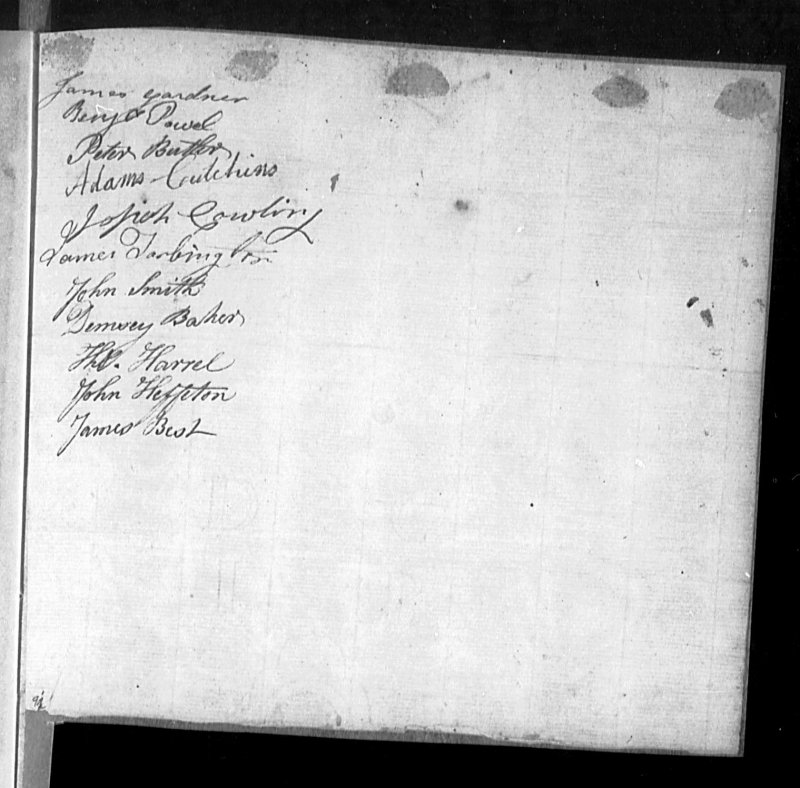 James Gardner
Benj Powel
Peter Butler
Adams Cutchins
Joseph Cowling
James Tarbington
John Smith
Demsey Baker
Tho. Harrel
John Heffeton
James Best